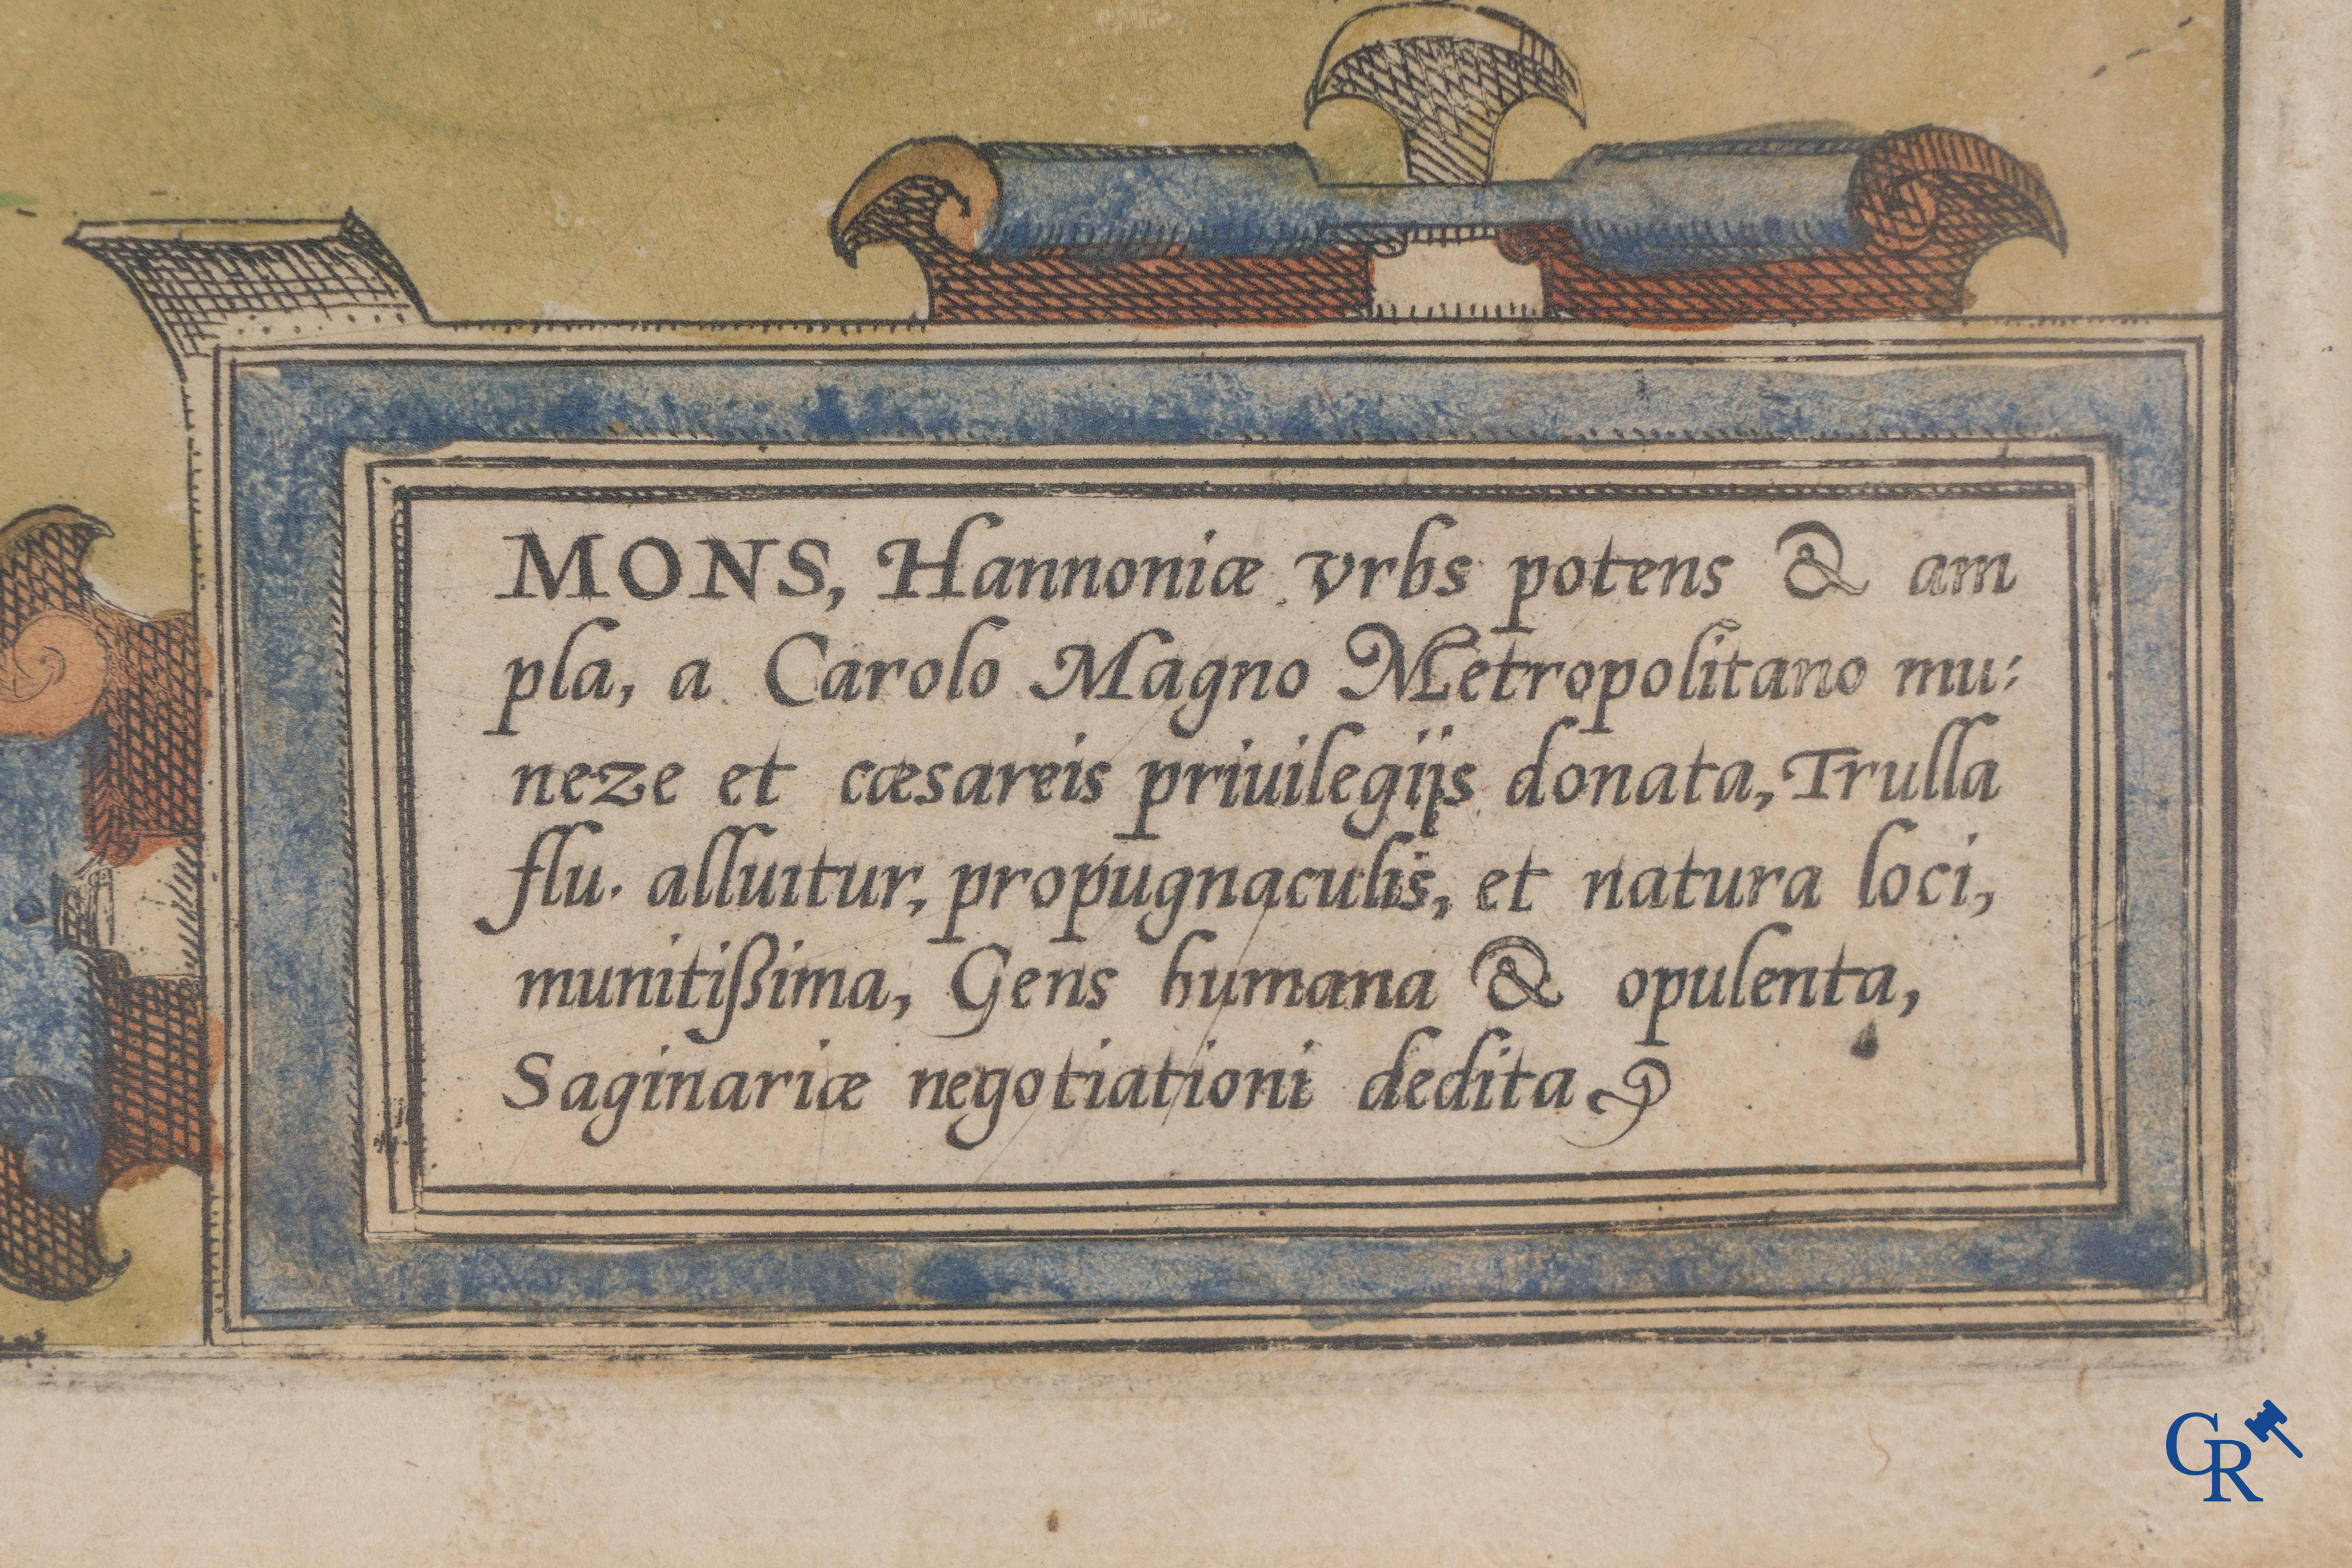 MONS, Hannoniæ vrbs potens & am
pla, a Carolo Magno Metropolitano mu:
neze et cæsareis priuilegijs donata, Trulla
flu. alluitur, propugnaculis, et natura loci,
munitißima, Gens humana & opulenta,
Saginariæ negotiationi dedita
CR